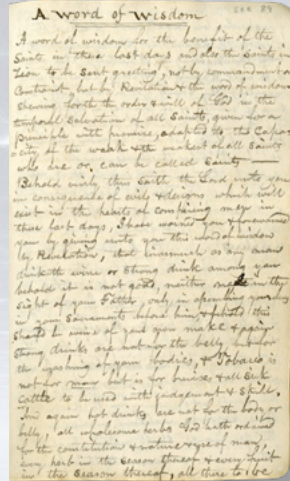 Sec 89
A Word of Wisdom
A word of wisdom for the benefit of the
Saints in these last days and also the Saints in
Zion to be sent greeting, not by commandment or
Constraint, but by Revelation & the word of wisdom
shewing forth the order & will of God in the
temporal salvation of all Saints, given for a
principle with promise, adapted to the Capa
city of the weak & the weakest of all Saints
who are or can be called Saints —
Behold verily thus saith the Lord unto you
in consequence of evils & designs which will
exist in the hearts of conspiring men in
these last days, I have warned you & forewarned
you by giving unto you this word of wisdom
by Revelation, that inasmuch as any man
drinketh wine or Strong drink among you
behold it is not good, neither meet in the
sight of your Father, only in assembling yourselves
in your Sacraments before him & behold this
should be wine of your own make & again
Strong drinks are not for the belly but for
the washing of your bodies, & Tobacco is
not for many but is for bruises & all Sick
Cattle to be used with judgement & skill.
And again hot drinks are not for the body or
belly, all wholesome herbs God hath ordained
for the constitution & nature & use of many,
Every herb in the Season thereof & every fruit
in the Season thereof, all these to be